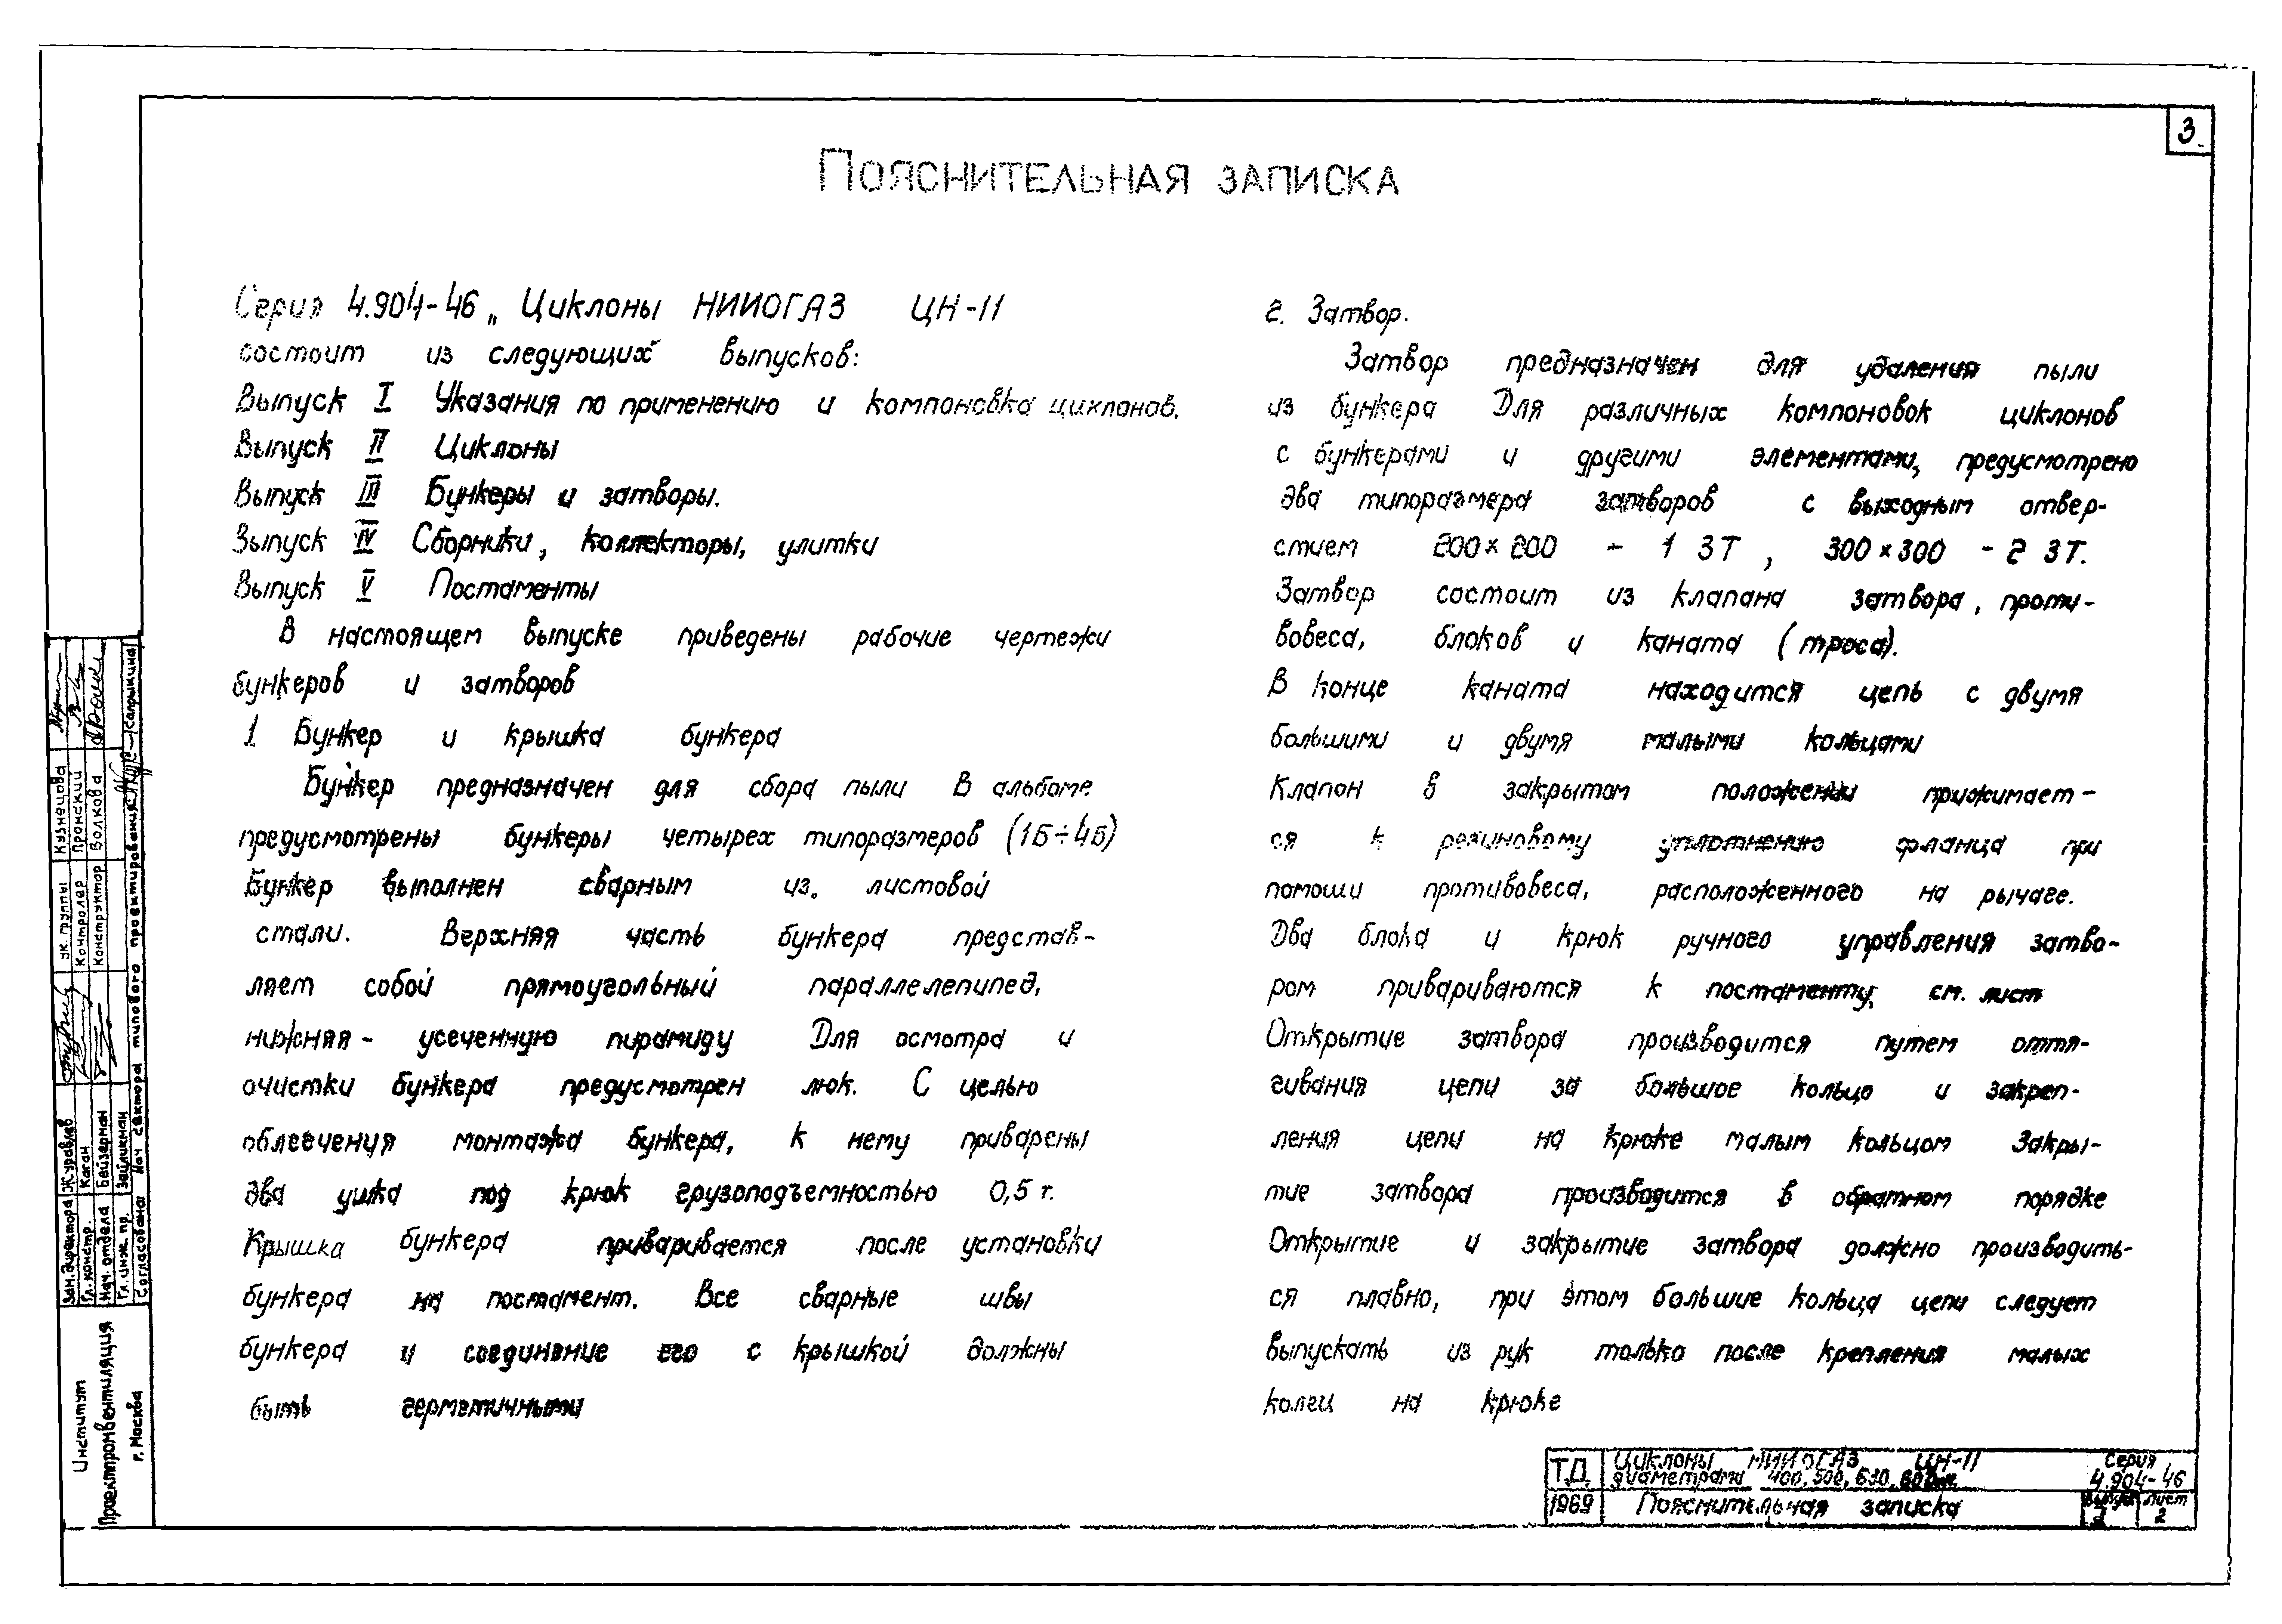 3
Пояснительная записка
Серия 4.904-46 „ Циклоны НИИОГАЗ ЦН-11
состоит из следующих выпусков:
Выпуск I Указания по применению и компоновка циклонов.
Выпуск II Циклоны
Выпуск III Бункеры и затворы.
Выпуск IV Сборники, коллекторы, улитки
Выпуск V Постаменты
В настоящем выпуске приведены рабочие чертежи
бункеров и затворов
1 Бункер и крышка бункера
Бункер предназначен для сбора пыли В альбоме
предусмотрены бункеры четырех типоразмеров (1Б÷4Б)
Бункер выполнен сварным из листовой
стали. Верхняя часть бункера представ-
ляет собой прямоугольный параллелепипед,
нижняя - усеченную пирамиду Для осмотра и
очистки бункера предусмотрен люк. С целью
облегчения монтажа бункера, к нему приварены
два ушка под крюк грузоподъемностью 0,5 т.
Крышка бункера приваривается после установки
бункера на постамент. Все сварные швы
бункера и соединение его с крышкой должны
быть герметичными
2. Затвор.
Затвор предназначен для удаления пыли
из бункера Для различных компоновок циклонов
с бункерами и другими элементами, предусмотрено
два типоразмера затворов с выходным отвер-
стием 200×200 - 1 ЗТ, 300×300 - 2 ЗТ.
Затвор состоит из клапана затвора, проти-
вовеса, блоков и каната (троса).
В конце каната находится цепь с двумя
большими и двумя малыми кольцами
Клапан в закрытом положении прижимает-
ся к резиновому уплотнению фланца при
помощи противовеса, расположенного на рычаге.
Два блока и крюк ручного управления затво-
ром привариваются к постаменту, см. лист
Открытие затвора производится путем оття-
гивания цепи за большое кольцо и закреп-
ления цепи на крюке малым кольцом Закры-
тие затвора производится в обратном порядке
Открытие и закрытие затвора должно производить-
ся плавно, при этом большие кольца цепи следует
выпускать из рук только после крепления малых
колец на крюке
ТД
1969
Циклоны НИИОГАЗ ЦН-11
диаметрами 400, 500, 630, 800мм.
Пояснительная записка
Серия
4.904-46
Выпуск
3
Лист
2
Институт
Проектпромвентиляция
г. Москва
Зам. директора Журавлев
Гл. констр. Каган
Нач. отдела Бейзерман
Гл. инж. пр. Зайликман
Согласовано Нач сектора типового проектирования
ук. группы Кузнецова
Контролер Пронский
Конструктор Волкова